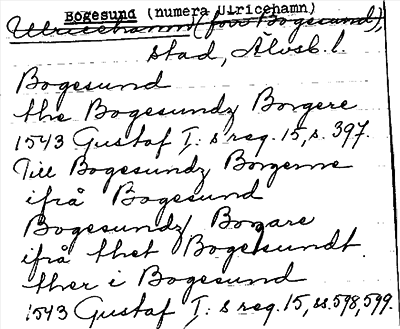 Bogesund (numera Ulricehamn)
Ulricehamn (förr Bogesund),
stad, Älvsb. l.
Bogesund
the Bogesundz Borgere
1543 Gustaf I: s reg. 15, s. 397.
Till Bogesundz Borgerne
ifrå Bogesund
Bogesundz Borgare
ifrå thet Bogesundt
ther i Bogesund
1543 Gustaf I: s reg. 15, ss. 598, 599.